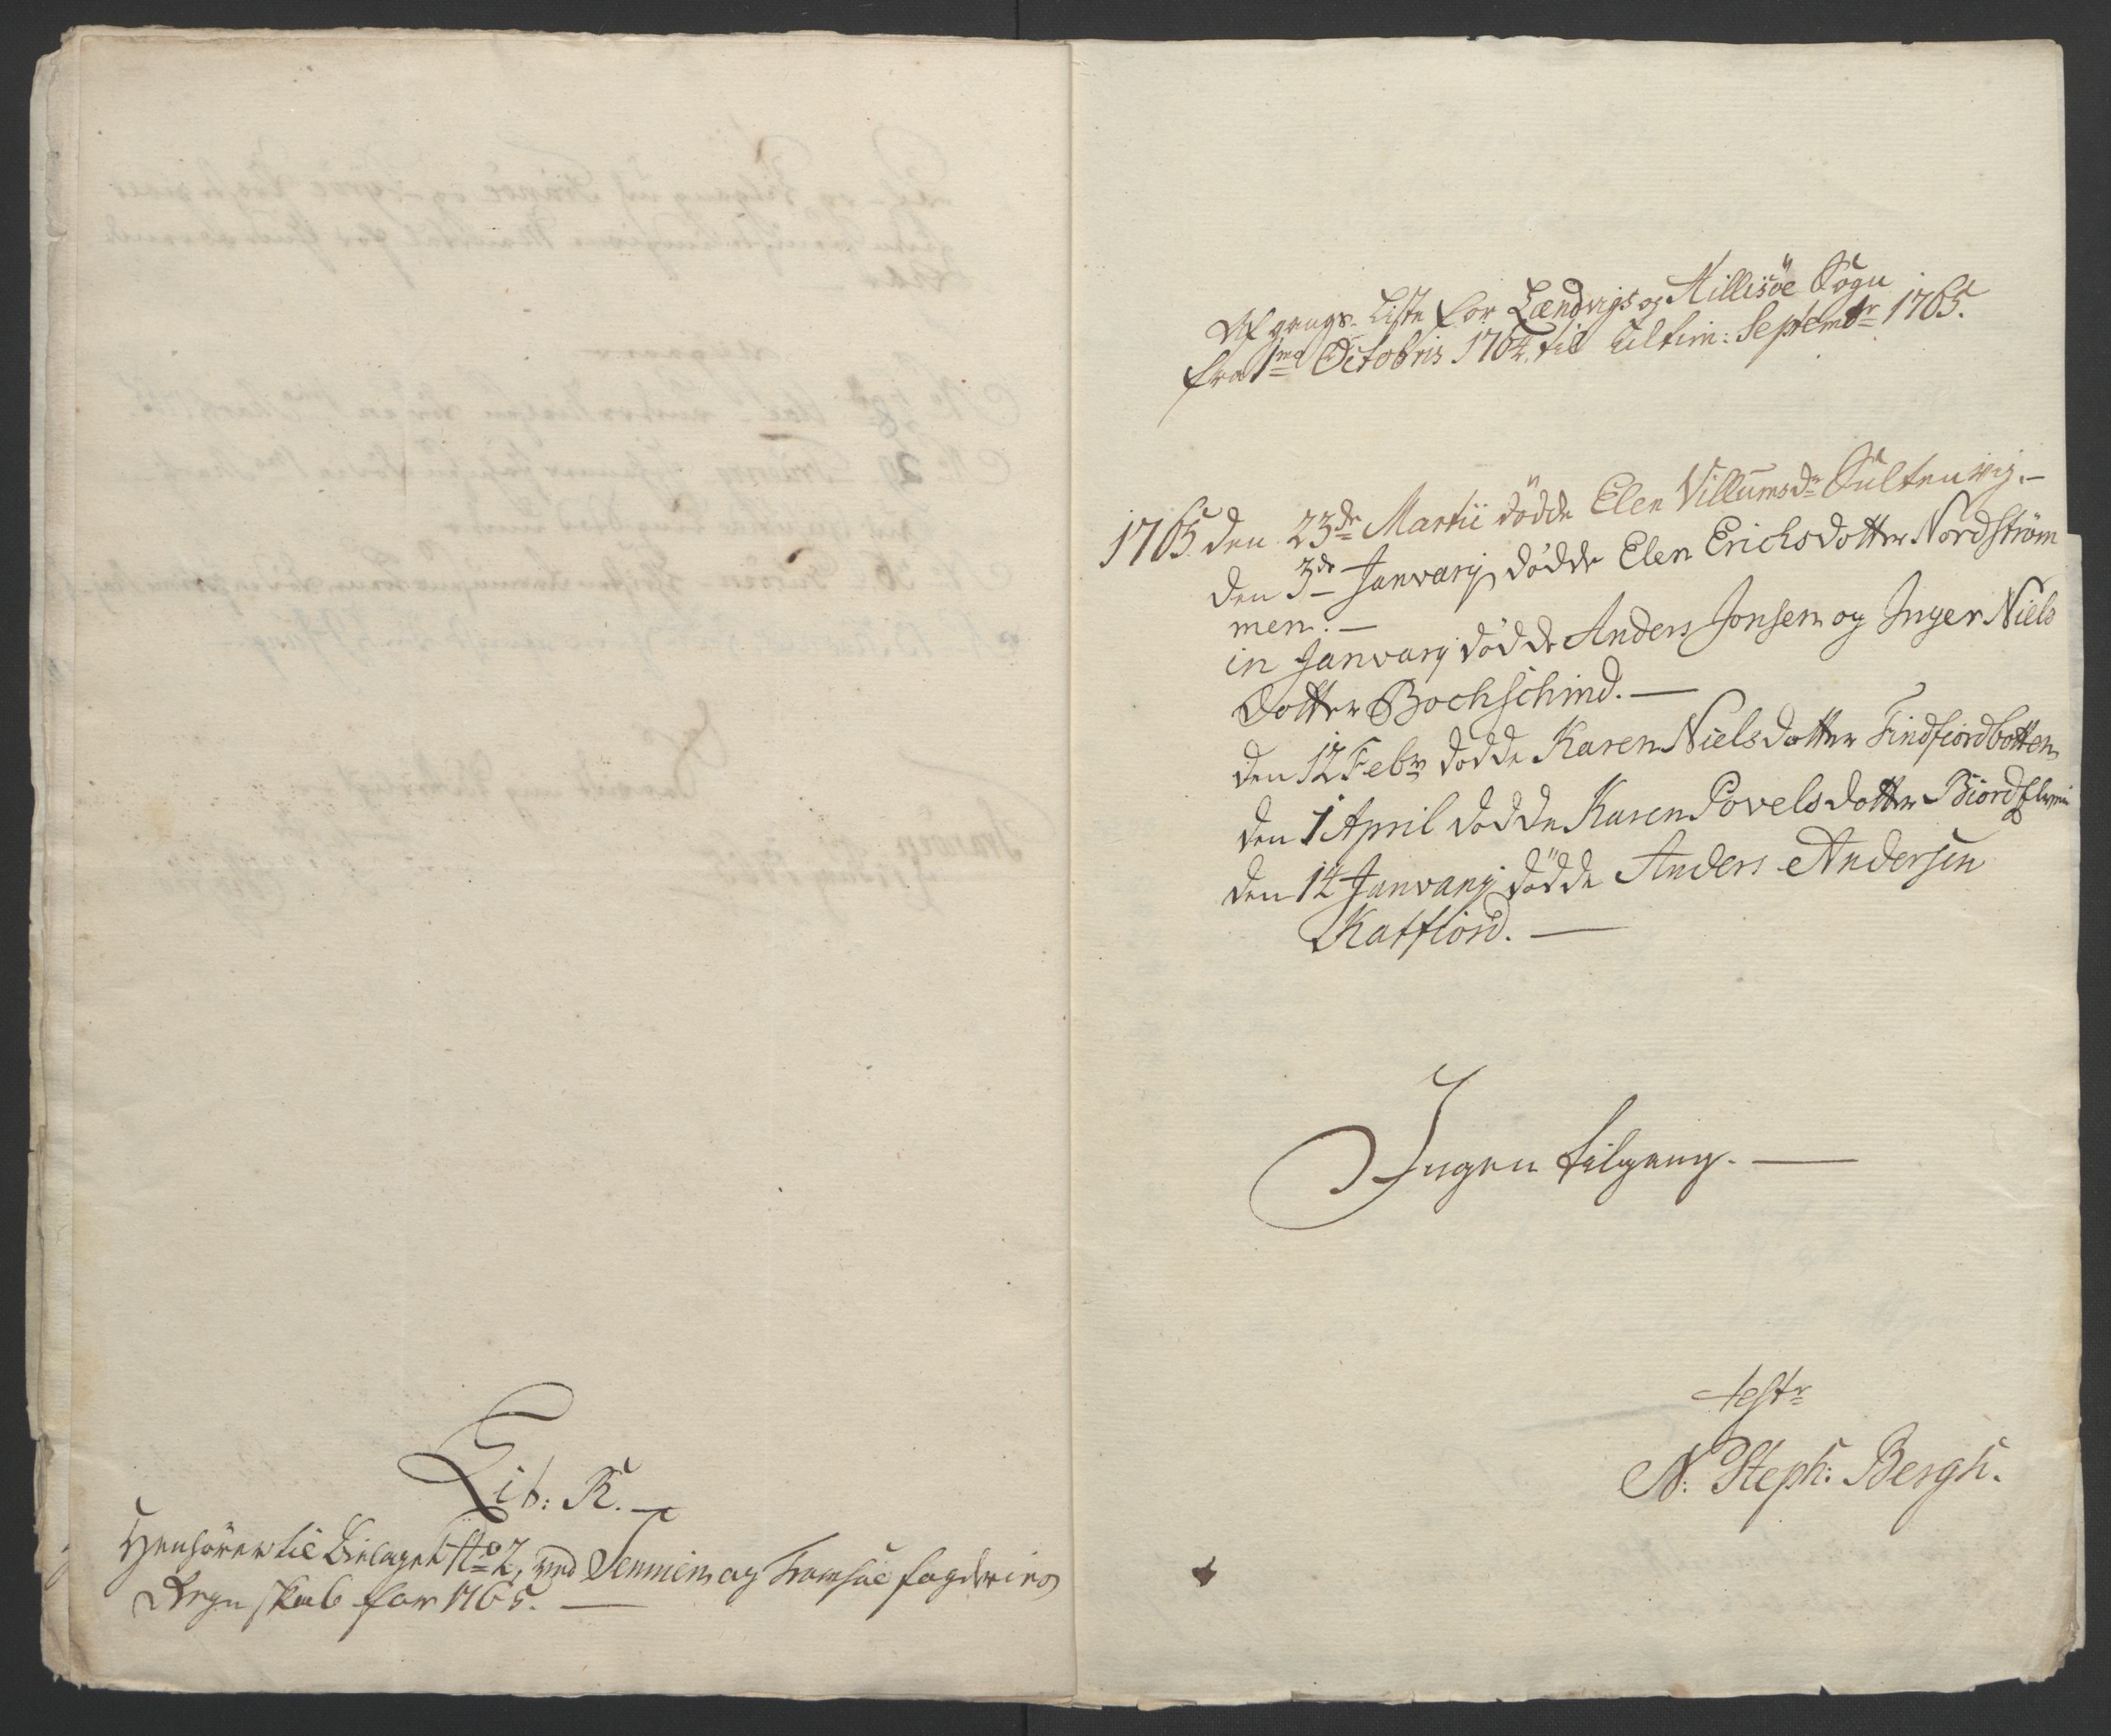 Lit: K.
Henhörer til Bielaget No 2, ved Senniens og Tromsöe fogderies
Regnskab for 1765.
Afgangs-Liste for Lændvigs og Hillisöe Sogn
fra 1mo Octobris 1764. til ultim: Septembr 1765.
1765. den 23de Martii dödde Elen Villumsdr Sultenvig.
den 3de Janvarij dödde Elen Erichsdotter Nordström
men.
in Janvarij dödde Anders Jonsen og Inger Niels
dotter Bochschind.
den 12 Febr dödde Karen Nielsdotter Findfiordbotten
den 1 April dödde Karen Povelsdotter
den 14 Janvarij dödde Anders Andersen
Katfiord.
Ingen tilgang.
test
N: Steph: Bergh.